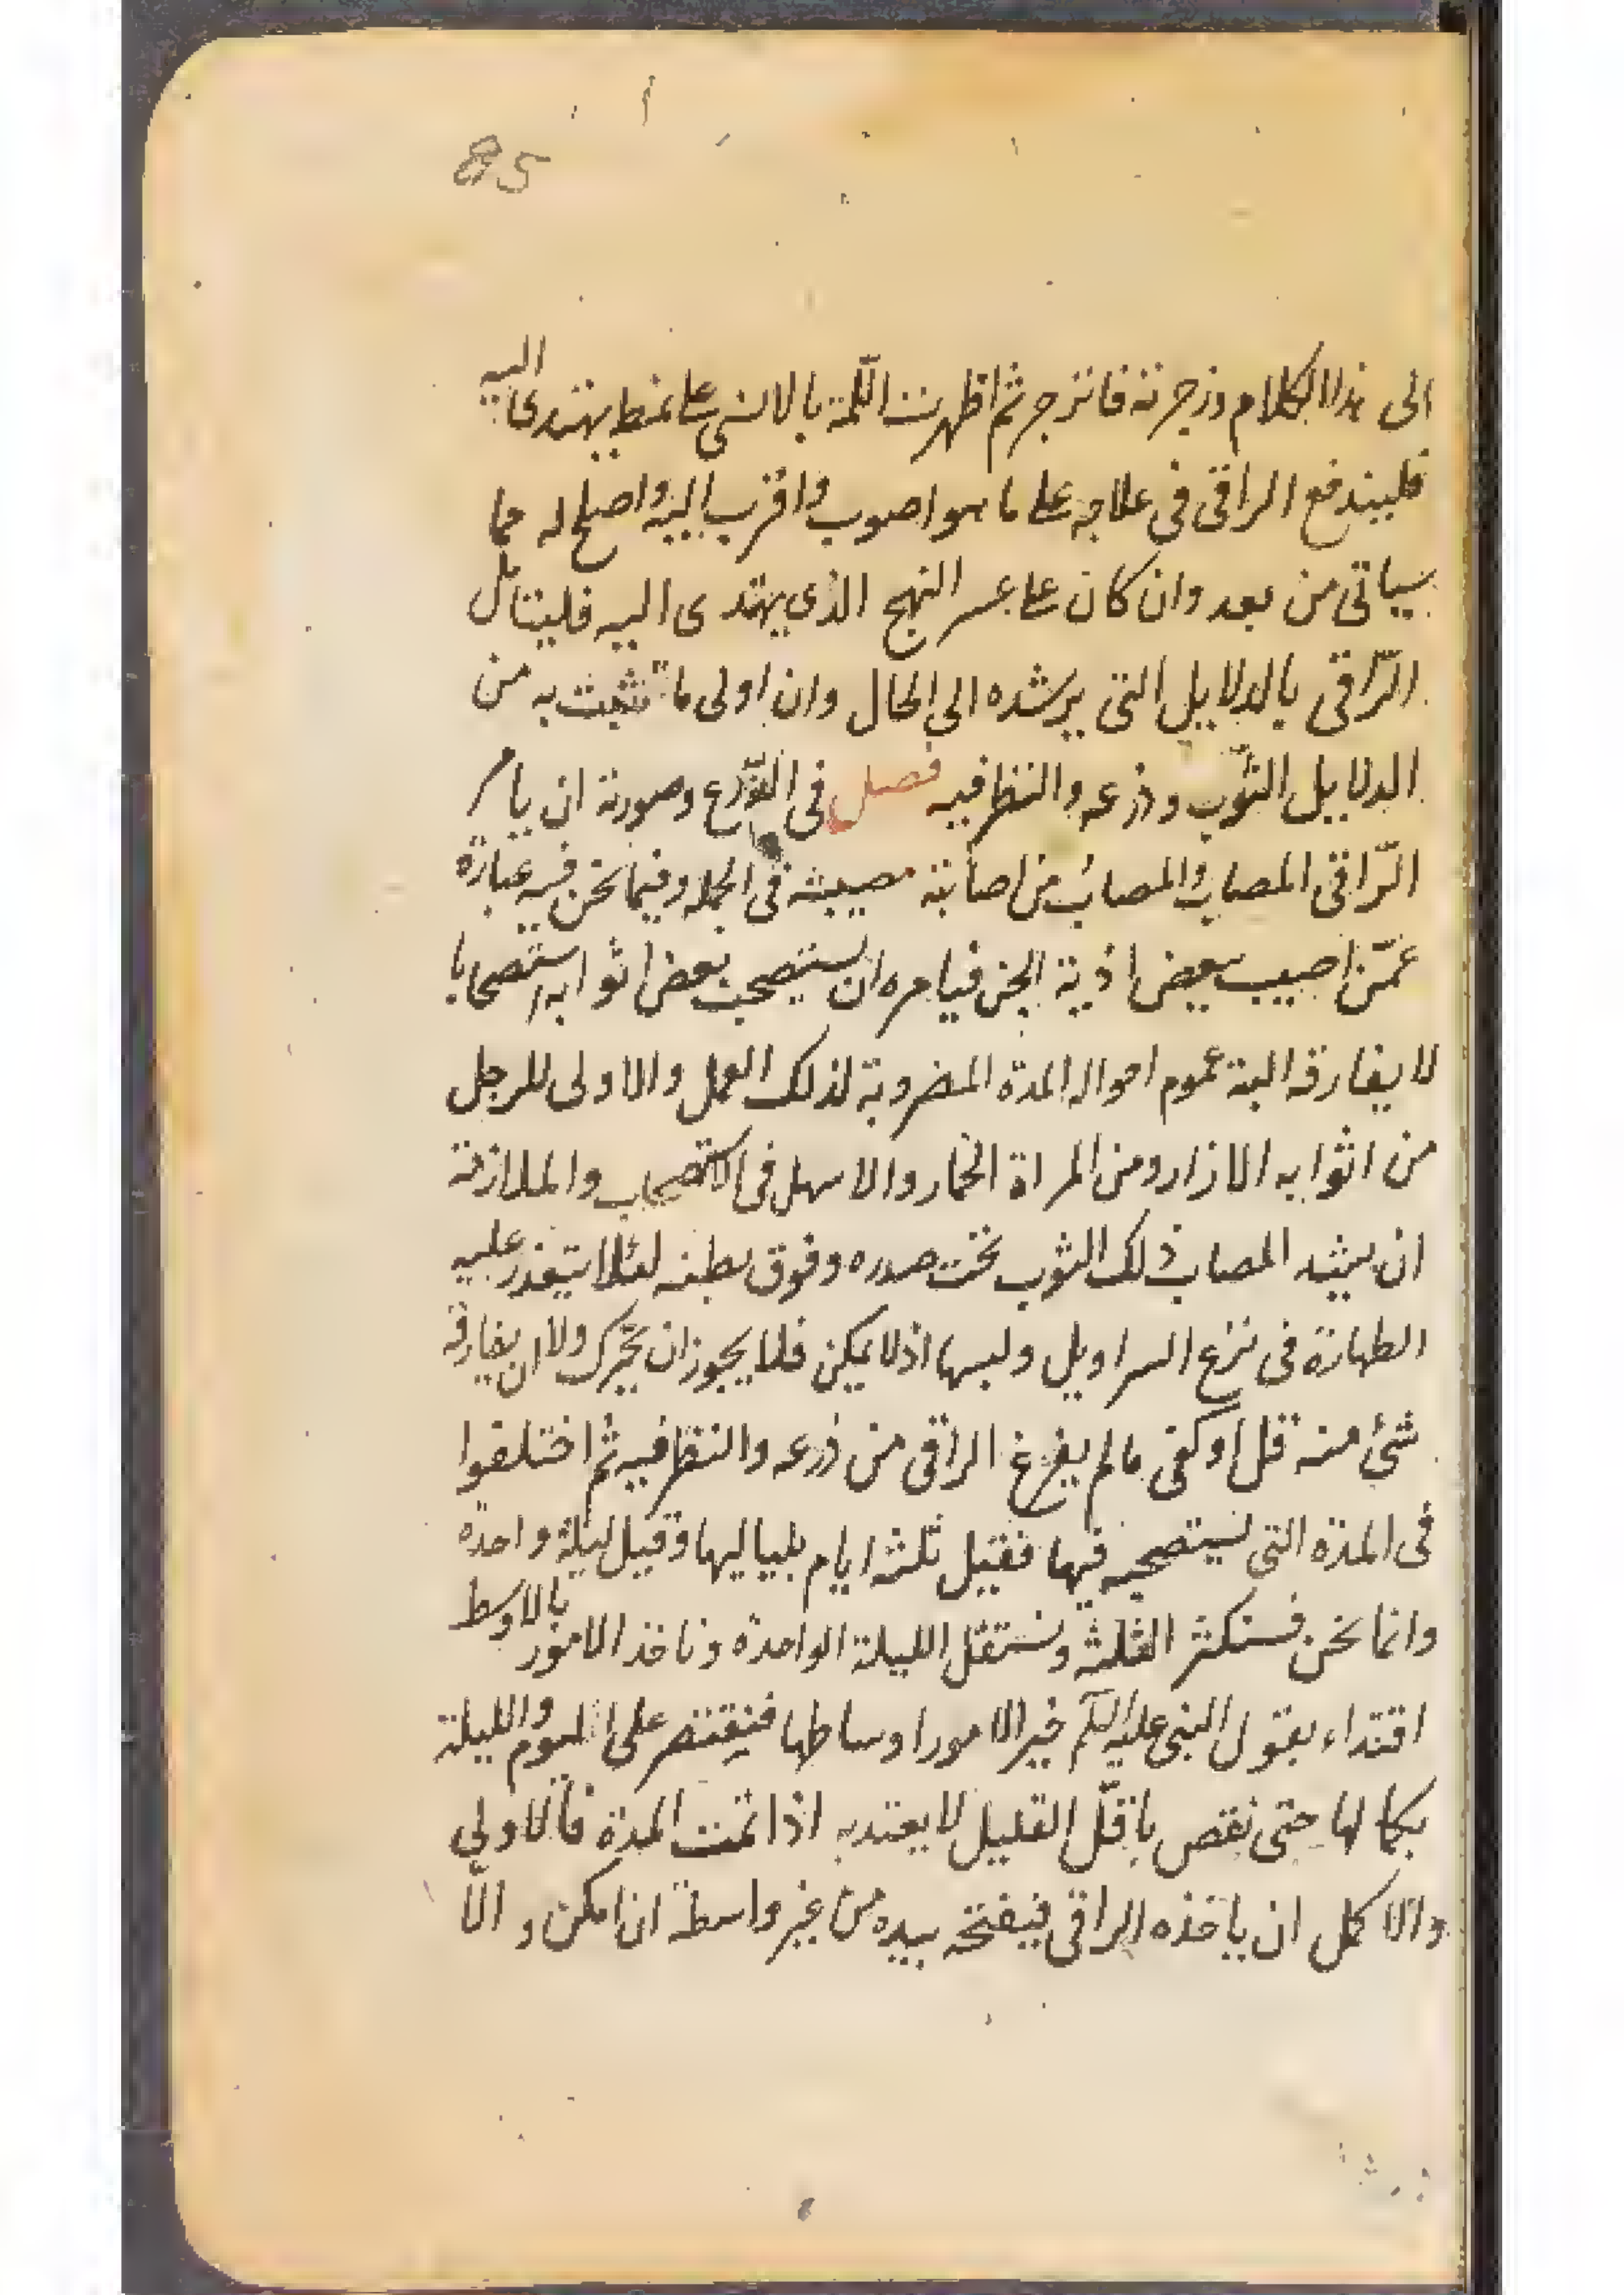 85
الى هذا الكلام وزجرته فانزجر ثم اظهرت الكلمة بالانسى على نمط يهتدى اليه
فليندفع الراقى فى علاجه على ما هو اصوب واقرب اليه واصلح له مما
سياتى من بعد وان كان على عسر النهج الذي يهتدى اليه فليتامل
الرّاقى بالدلايل التى يرشده الى الحال وان اولى ما تثبت به من
الدلايل الثوب وذرعه والنظر فيه فصل فى الذّرع وصورته ان يامر
الرّاقى المصاب والمصاب من اصابته مصيبته فى الجمله وفيما نحن فيه عبارة
عمّن اصيب ببعض اذية الجن فيامره ان يستصحب بعض اثوابه استصحابا
لا يفارقه البتة عموم احواله المدة المضروبة لذلك العمل والاولى للرجل
من اثوابه الازار ومن المراة الخمار والاسهل فى الاستصحاب والملازمة
ان يشد المصاب ذلك الثوب تحت صدره وفوق بطنه لئلا يتعذر عليه
الطهارة فى نزع السراويل ولبسها اذ لا يمكن فلا يجوز ان يحرك ولا ان يفارقه
شئ منه قل او كثر ما لم يفرغ الراقى من ذرعه والنظر فيه ثم اختلفوا
فى المدة التى يستصحبه فيها فقيل ثلثه ايام بلياليها وقيل ليلة واحدة
وانما نحن فنستكثر الثلثة ونستقل الليلة الواحدة وناخذ الامور بالاوسط
اقتداء بقول النبى عليه السلم خير الامور اوساطها فنقتصر على اليوم والليلة
بكمالها حتى نقص باقلّ القليل لا يعتد به اذا تمت المدة فالاولى
والاكمل ان ياخذه الراقى فيفتحه بيده من غير واسطة ان امكن والّا